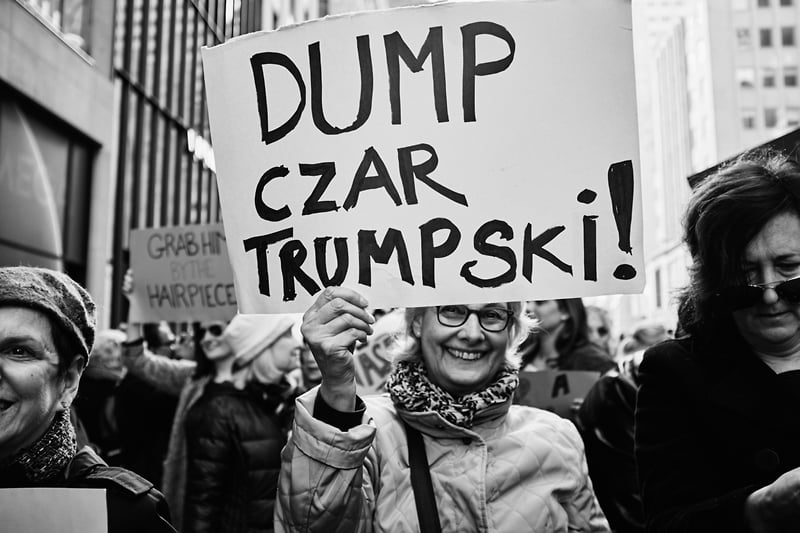 DUMP
CZAR
TRUMPSKi!
GRAB HIM
BY THE
HAIRPIECE
A